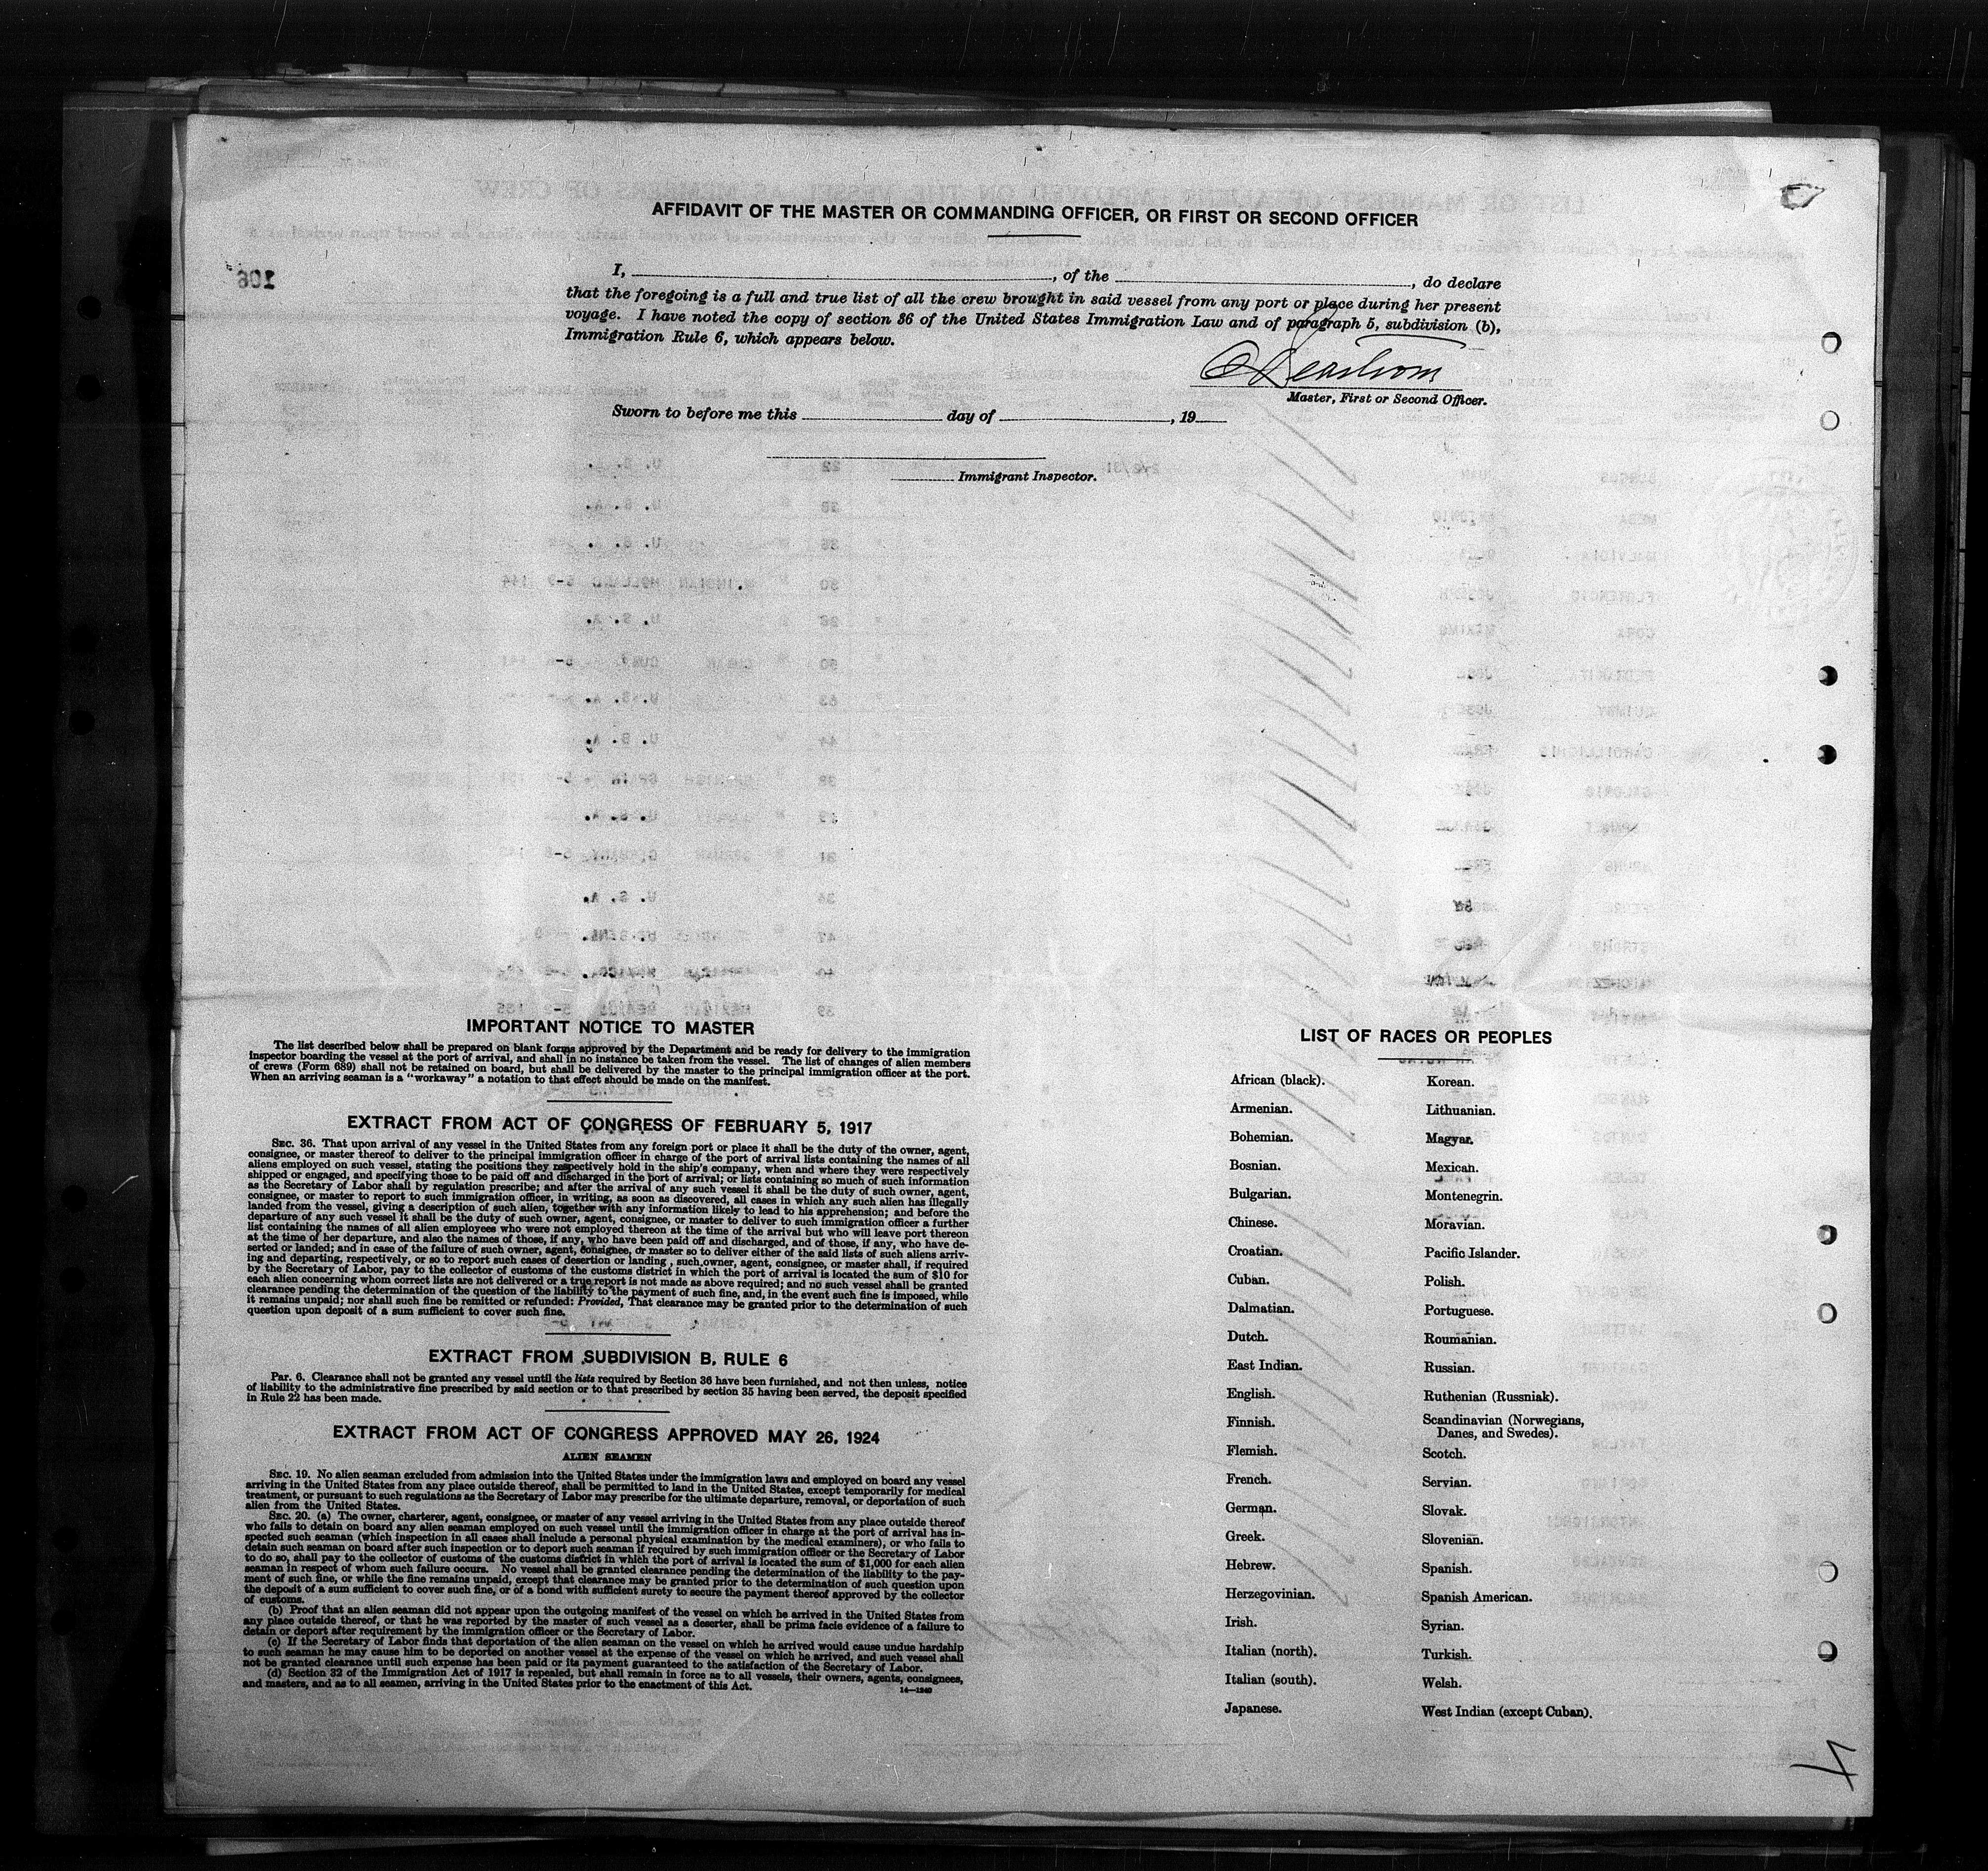 AFFIDAVIT OF THE MASTER OR COMMANDING OFFICER, OR FIRST OR SECOND OFFICER
I, , of the , do declare
that the foregoing is a full and true list of all the crew brought in said vessel from any port or place during her present
voyage. I have noted the copy of section 36 of the United States Immigration Law and of paragraph 5, subdivision (b),
Immigration Rule 6, which appears below.
Master, First or Second Officer.
Sworn to before me this day of , 19
Immigrant Inspector.
106
IMPORTANT NOTICE TO MASTER
The list described below shall be prepared on blank forms approved by the Department and be ready for delivery to the immigration
inspector boarding the vessel at the port of arrival, and shall in no instance be taken from the vessel. The list of changes of alien members
of crews (Form 689) shall not be retained on board, but shall be delivered by the master to the principal immigration officer at the port.
When an arriving seaman is a "workaway" a notation to that effect should be made on the manifest.
EXTRACT FROM ACT OF CONGRESS OF FEBRUARY 5, 1917
SEC. 36. That upon arrival of any vessel in the United States from any foreign port or place it shall be the duty of the owner, agent,
consignee, or master thereof to deliver to the principal immigration officer in charge of the port of arrival lists containing the names of all
aliens employed on such vessel, stating the positions they respectively hold in the ship's company, when and where they were respectively
shipped or engaged, and specifying those to be paid off and discharged in the port of arrival; or lists containing so much of such information
as the Secretary of Labor shall by regulation prescribe; and after the arrival of any such vessel it shall be the duty of such owner, agent,
consignee, or master to report to such immigration officer, in writing, as soon as discovered, all cases in which any such alien has illegally
landed from the vessel, giving a description of such alien, together with any information likely to lead to his apprehension; and before the
departure of any such vessel it shall be the duty of such owner, agent, consignee, or master to deliver to such immigration officer a further
list containing the names of all alien employees who were not employed thereon at the time of the arrival but who will leave port thereon
at the time of her departure, and also the names of those, if any, who have been paid off and discharged, and of those, if any, who have de-
serted or landed; and in case of the failure of such owner, agent, consignee, or master so to deliver either of the said lists of such aliens arriv-
ing and departing, respectively, or so to report such cases of desertion or landing, such owner, agent, consignee, or master shall, if required
by the Secretary of Labor, pay to the collector of customs of the customs district in which the port of arrival is located the sum of $10 for
each alien concerning whom correct lists are not delivered or a true report is not made as above required; and no such vessel shall be granted
clearance pending the determination of the question of the liability to the payment of such fine, and, in the event such fine is imposed, while
it remains unpaid; nor shall such fine be remitted or refunded: Provided, That clearance may be granted prior to the determination of such
question upon deposit of a sum sufficient to cover such fine.
EXTRACT FROM SUBDIVISION B, RULE 6
Par. 6. Clearance shall not be granted any vessel until the lists required by Section 36 have been furnished, and not then unless, notice
of liability to the administrative fine prescribed by said section or to that prescribed by section 35 having been served, the deposit specified
in Rule 22 has been made.
EXTRACT FROM ACT OF CONGRESS APPROVED MAY 26, 1924
ALIEN SEAMEN
SEC. 19. No alien seaman excluded from admission into the United States under the immigration laws and employed on board any vessel
arriving in the United States from any place outside thereof, shall be permitted to land in the United States, except temporarily for medical
treatment, or pursuant to such regulations as the Secretary of Labor may prescribe for the ultimate departure, removal, or deportation of such
alien from the United States.
SEC. 20. (a) The owner, charterer, agent, consignee, or master of any vessel arriving in the United States from any place outside thereof
who fails to detain on board any alien seaman employed on such vessel until the immigration officer in charge at the port of arrival has in-
spected such seaman (which inspection in all cases shall include a personal physical examination by the medical examiners), or who fails to
detain such seaman on board after such inspection or to deport such seaman if required by such immigration officer or the Secretary of Labor
to do so, shall pay to the collector of customs of the customs district in which the port of arrival is located the sum of $1,000 for each alien
seaman in respect of whom such failure occurs. No vessel shall be granted clearance pending the determination of the liability to the pay-
ment of such fine, or while the fine remains unpaid, except that clearance may be granted prior to the determination of such question upon
the deposit of a sum sufficient to cover such fine, or of a bond with sufficient surety to secure the payment thereof approved by the collector
of customs.
(b) Proof that an alien seaman did not appear upon the outgoing manifest of the vessel on which he arrived in the United States from
any place outside thereof, or that he was reported by the master of such vessel as a deserter, shall be prima facie evidence of a failure to
detain or deport after requirement by the immigration officer or the Secretary of Labor.
(c) If the Secretary of Labor finds that deportation of the alien seaman on the vessel on which he arrived would cause undue hardship
to such seaman he may cause him to be deported on another vessel at the expense of the vessel on which he arrived, and such vessel shall
not be granted clearance until such expense has been paid or its payment guaranteed to the satisfaction of the Secretary of Labor.
(d) Section 32 of the Immigration Act of 1917 is repealed, but shall remain in force as to all vessels, their owners, agents, consignees,
and masters, and as to all seamen, arriving in the United States prior to the enactment of this Act.
14—1240
LIST OF RACES OR PEOPLES
African (black).
Armenian.
Bohemian.
Bosnian.
Bulgarian.
Chinese.
Croatian.
Cuban.
Dalmatian.
Dutch.
East Indian.
English.
Finnish.
Flemish.
French.
German.
Greek.
Hebrew.
Herzegovinian.
Irish.
Italian (north).
Italian (south).
Japanese.
Korean.
Lithuanian.
Magyar.
Mexican.
Montenegrin.
Moravian.
Pacific Islander.
Polish.
Portuguese.
Roumanian.
Russian.
Ruthenian (Russniak).
Scandinavian (Norwegians,
Danes, and Swedes).
Scotch.
Servian.
Slovak.
Slovenian.
Spanish.
Spanish American.
Syrian.
Turkish.
Welsh.
West Indian (except Cuban).